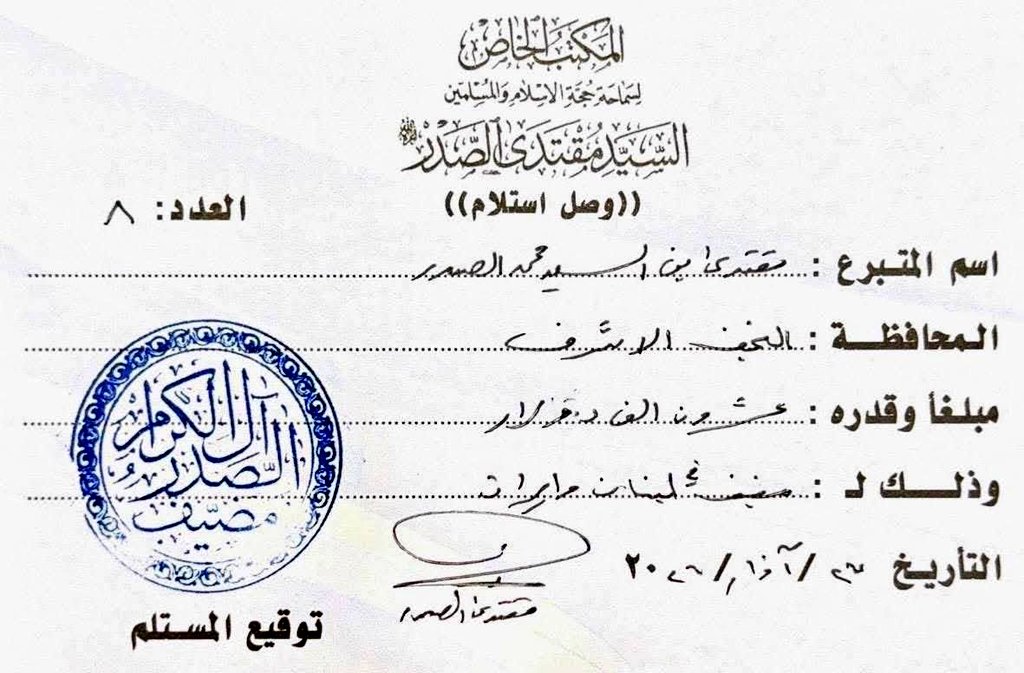 المكتب الخاص
لسماحة حجة الاسلام والمسلمين
السيد مقتدى الصدر
((وصل استلام))
العدد: ٨
اسم المتبرع : مقتدى ابن السيد محمد الصدر
المحافظة : النجف الاشرف
مبلغاً وقدره : عشرون الف دولار
وذلك لـ : مضيف لبنان وايران
التأريخ ٢٦/آذار/٢٠٢٦
مقتدى الصدر
توقيع المستلم
آل الصدر الكرام
مضيف